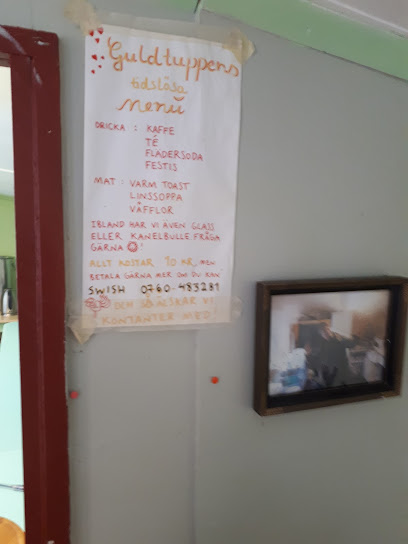 Guldtuppens
tidslösa
Menü
DRICKA : KAFFE
TÉ
FLÄDERSODA
FESTIS
MAT : VARM TOAST
LINSSOPPA
VÅFFLOR
IBLAND HAR VI ÄVEN GLASS
ELLER KANELBULLE. FRÅGA
GÄRNA !
ALLT KOSTAR 10 KR, MEN
BETALA GÄRNA MER OM DU KAN
SWISH 0760-483281
OCH SÅ ÄLSKAR VI
KONTANTER MED!